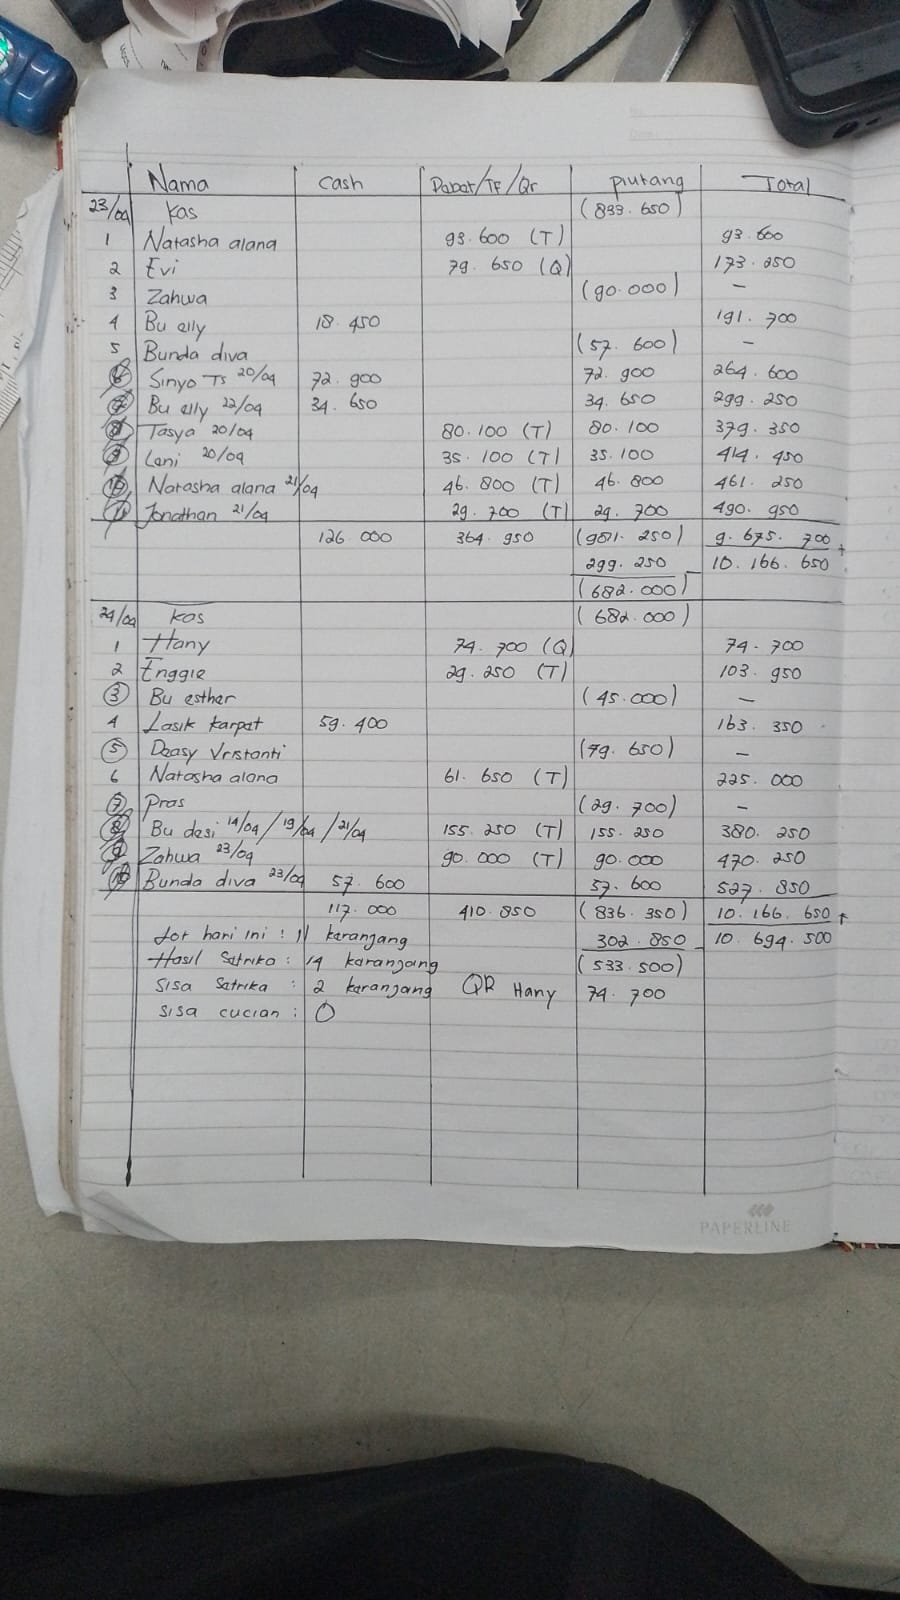 Nama Cash Debet/TF/Qr piutang Total
23/04 kas (833.650)
1 Natasha alana 93.600 (T) 93.600
2 Evi 79.650 (Q) 173.250
3 Zahwa (90.000) -
4 Bu elly 18.450 191.700
5 Bunda diva (57.600) -
6 Sinyo Ts 20/04 72.900 72.900 264.600
7 Bu elly 22/04 34.650 34.650 299.250
8 Tasya 20/04 80.100 (T) 80.100 379.350
9 Leni 20/04 35.100 (T) 35.100 414.450
10 Natasha alana 21/04 46.800 (T) 46.800 461.250
11 Jonathan 21/04 29.700 (T) 29.700 490.950
126.000 364.950 (981.250) 9.675.700 +
299.250 - 10.166.650
(682.000)
24/04 kas (682.000)
1 Hany 74.700 (Q) 74.700
2 Enggie 29.250 (T) 103.950
3 Bu esther (45.000) -
4 Lasik karpet 59.400 163.350
5 Deasy Vristanti (79.650) -
6 Natasha alana 61.650 (T) 225.000
7 Pras (29.700) -
8 Bu desi 14/04 / 19/04 / 21/04 155.250 (T) 155.250 380.250
9 Zahwa 23/04 90.000 (T) 90.000 470.250
10 Bunda diva 23/04 57.600 57.600 527.850
117.000 410.850 (836.350) 10.166.650 +
tot hari ini : 11 keranjang 302.850 - 10.694.500
Hasil Setrika : 14 keranjang (533.500)
Sisa Setrika : 2 keranjang QR Hany 74.700
Sisa cucian : 0
PAPERLINE